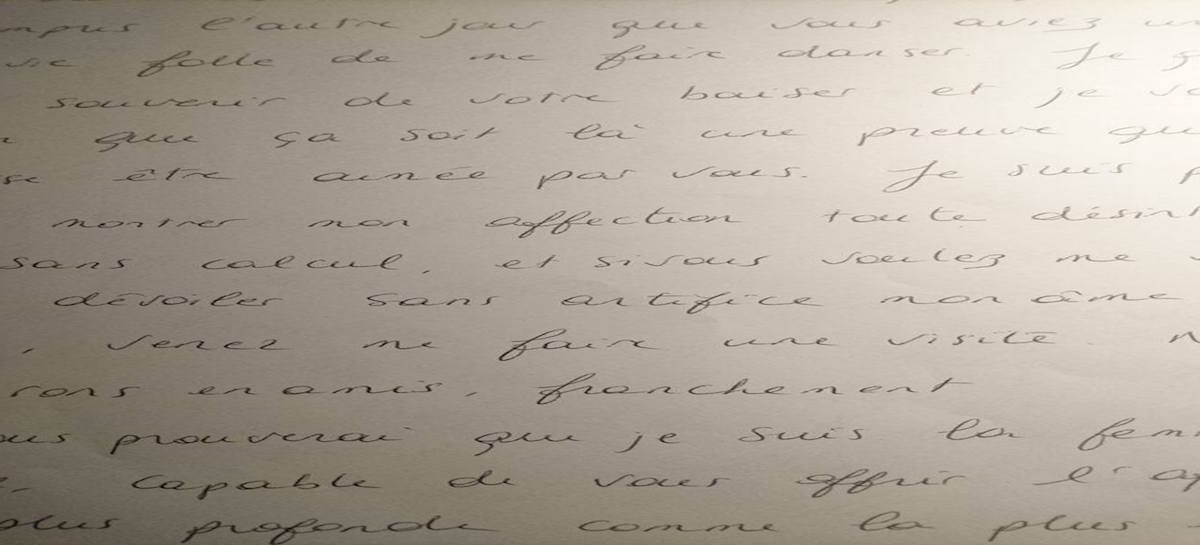 l'autre jour que vous aviez
folle de me faire danser. Je
souvenir de votre baiser et je
que ça soit là une preuve
être aimée par vous. Je suis
montrer mon affection toute
sans calcul, et si vous voulez me
dévoiler sans artifice mon âme
, venez me faire une visite.
en amis, franchement
prouverai que je suis la
, capable de vous offrir
plus profonde comme la plus